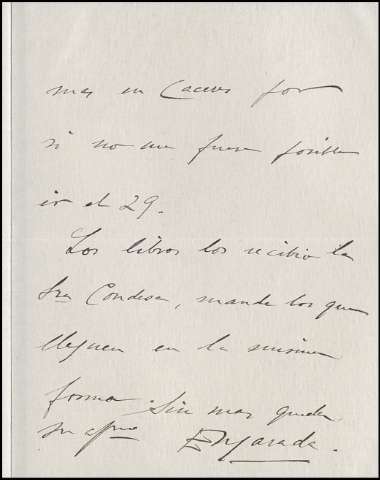 mas en Caceres por
si no me fuese posible
ir el 29.
Los libros los recibio la
Sra Condesa, mande los que
lleguen en la misma
forma. Sin mas queda
su afmo